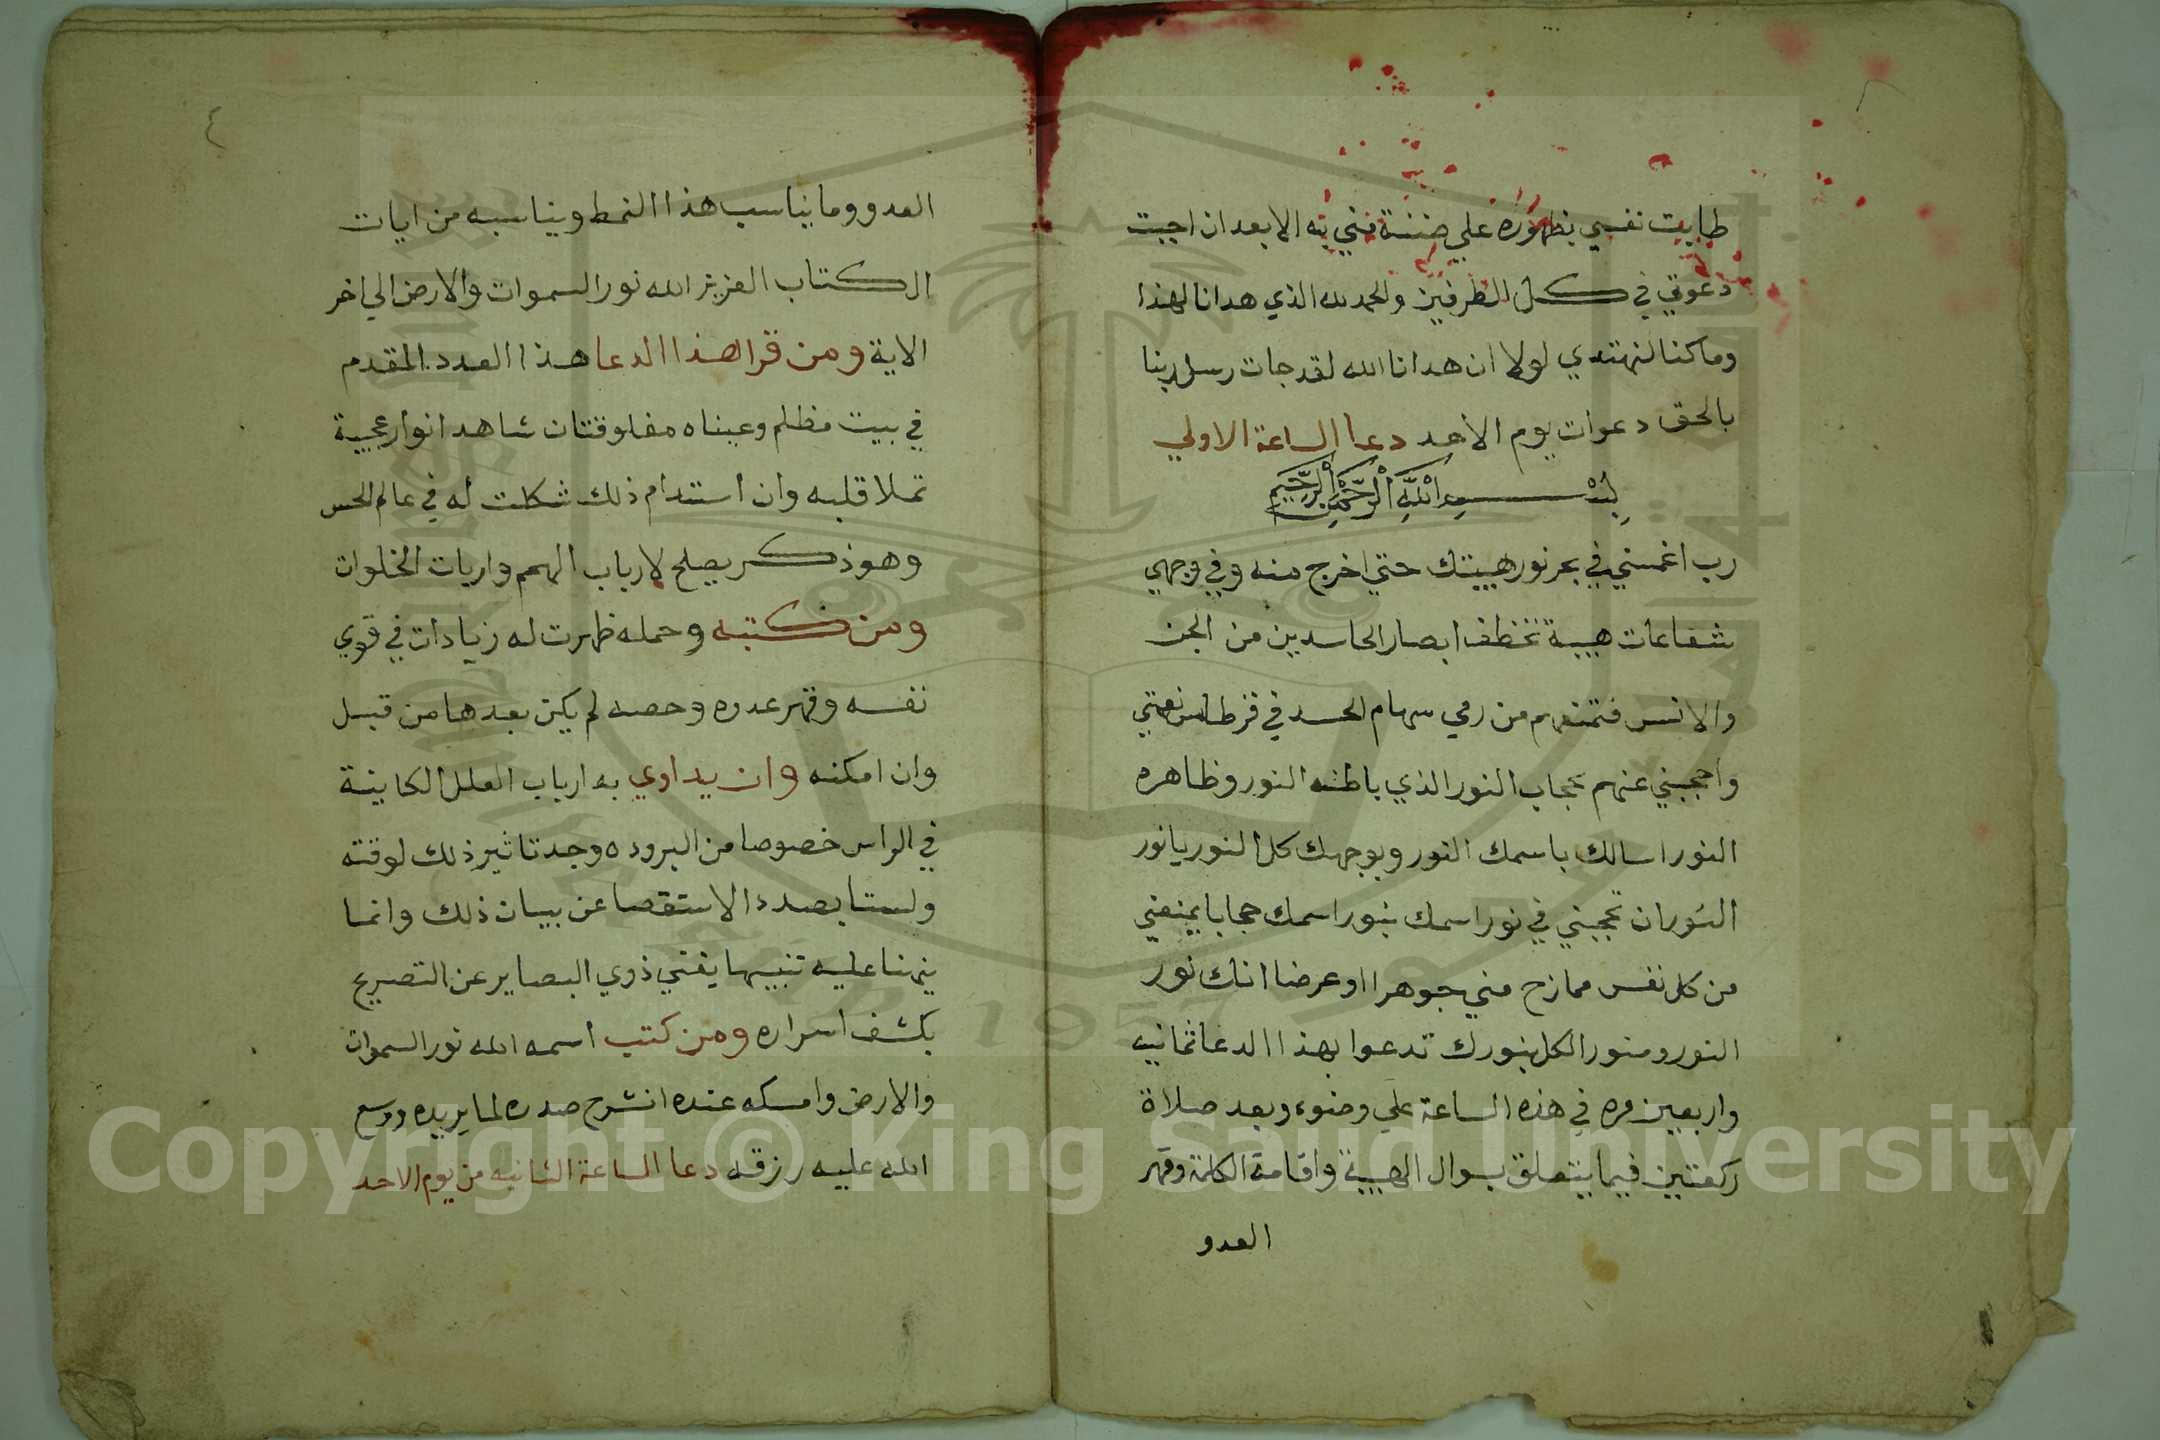 طابت نفسي بظهوره علي ضننة مني به الا بعد ان اجبت
دعوتي في كل الطرفين والحمد لله الذي هدانا لهذا
وما كنا لنهتدي لولا ان هدانا الله لقد جات رسل ربنا
بالحق دعوات يوم الأحد دعا الساعة الاولي
بِسْمِ اللَّهِ الرَّحْمَنِ الرَّحِيمِ
رب اغمسني في بحر نور هيبتك حتي اخرج منه وفي وجهي
شفاعات هيبة تخطف ابصار الحاسدين من الجن
والانس فتمنعهم من رمي سهام الحسد في قرطاس نعمتي
واحجبني عنهم بحجاب النور الذي باطنه النور وظاهره
النور اسالك باسمك النور وبوجهك كل النور يا نور
النور ان تحجبني في نور اسمك بنور اسمك حجابا يمنعني
من كل نقس ممازج مني جوهرا او عرضا انك نور
النور ومنور الكل بنورك تدعوا بهذا الدعا ثمانيه
واربعين مره في هذه الساعة علي وضوء وبعد صلاة
ركعتين فيما يتعلق بسوال الهيبة واقامة الكلمة وقهر
العدو
٤
العدو وما يناسب هذا النمط ويناسبه من ايات
الكتاب العزيز الله نور السموات والارض الي اخر
الاية ومن قرا هذا الدعا هذا العدد المقدم
في بيت مظلم وعيناه مغلوقتان شاهد انوار عجيبة
تملا قلبه وان استدام ذلك شكلت له في عالم الحس
وهو ذكر يصلح لارباب الهمم واربات الخلوات
ومن كتبه وحمله ظهرت له زيادات في قوي
نفسه وقهر عدوه وخصمه لم يكن بعدها من قبل
وان امكنه وان يداوي به ارباب العلل الكاينة
في الراس خصوصا من البروده وجد تاثير ذلك لوقته
ولسنا بصدد الاستقصا عن بيان ذلك وانما
ينهنا عليه تنبيها يغني ذوي البصاير عن التصريح
بكشف اسراره ومن كتب اسمه الله نور السموات
والارض وامسكه عنده انشرح صدره لما يريده ووسع
الله عليه رزقه دعا الساعة الثانيه من يوم الاحد
Copyright © King Saud University
1957